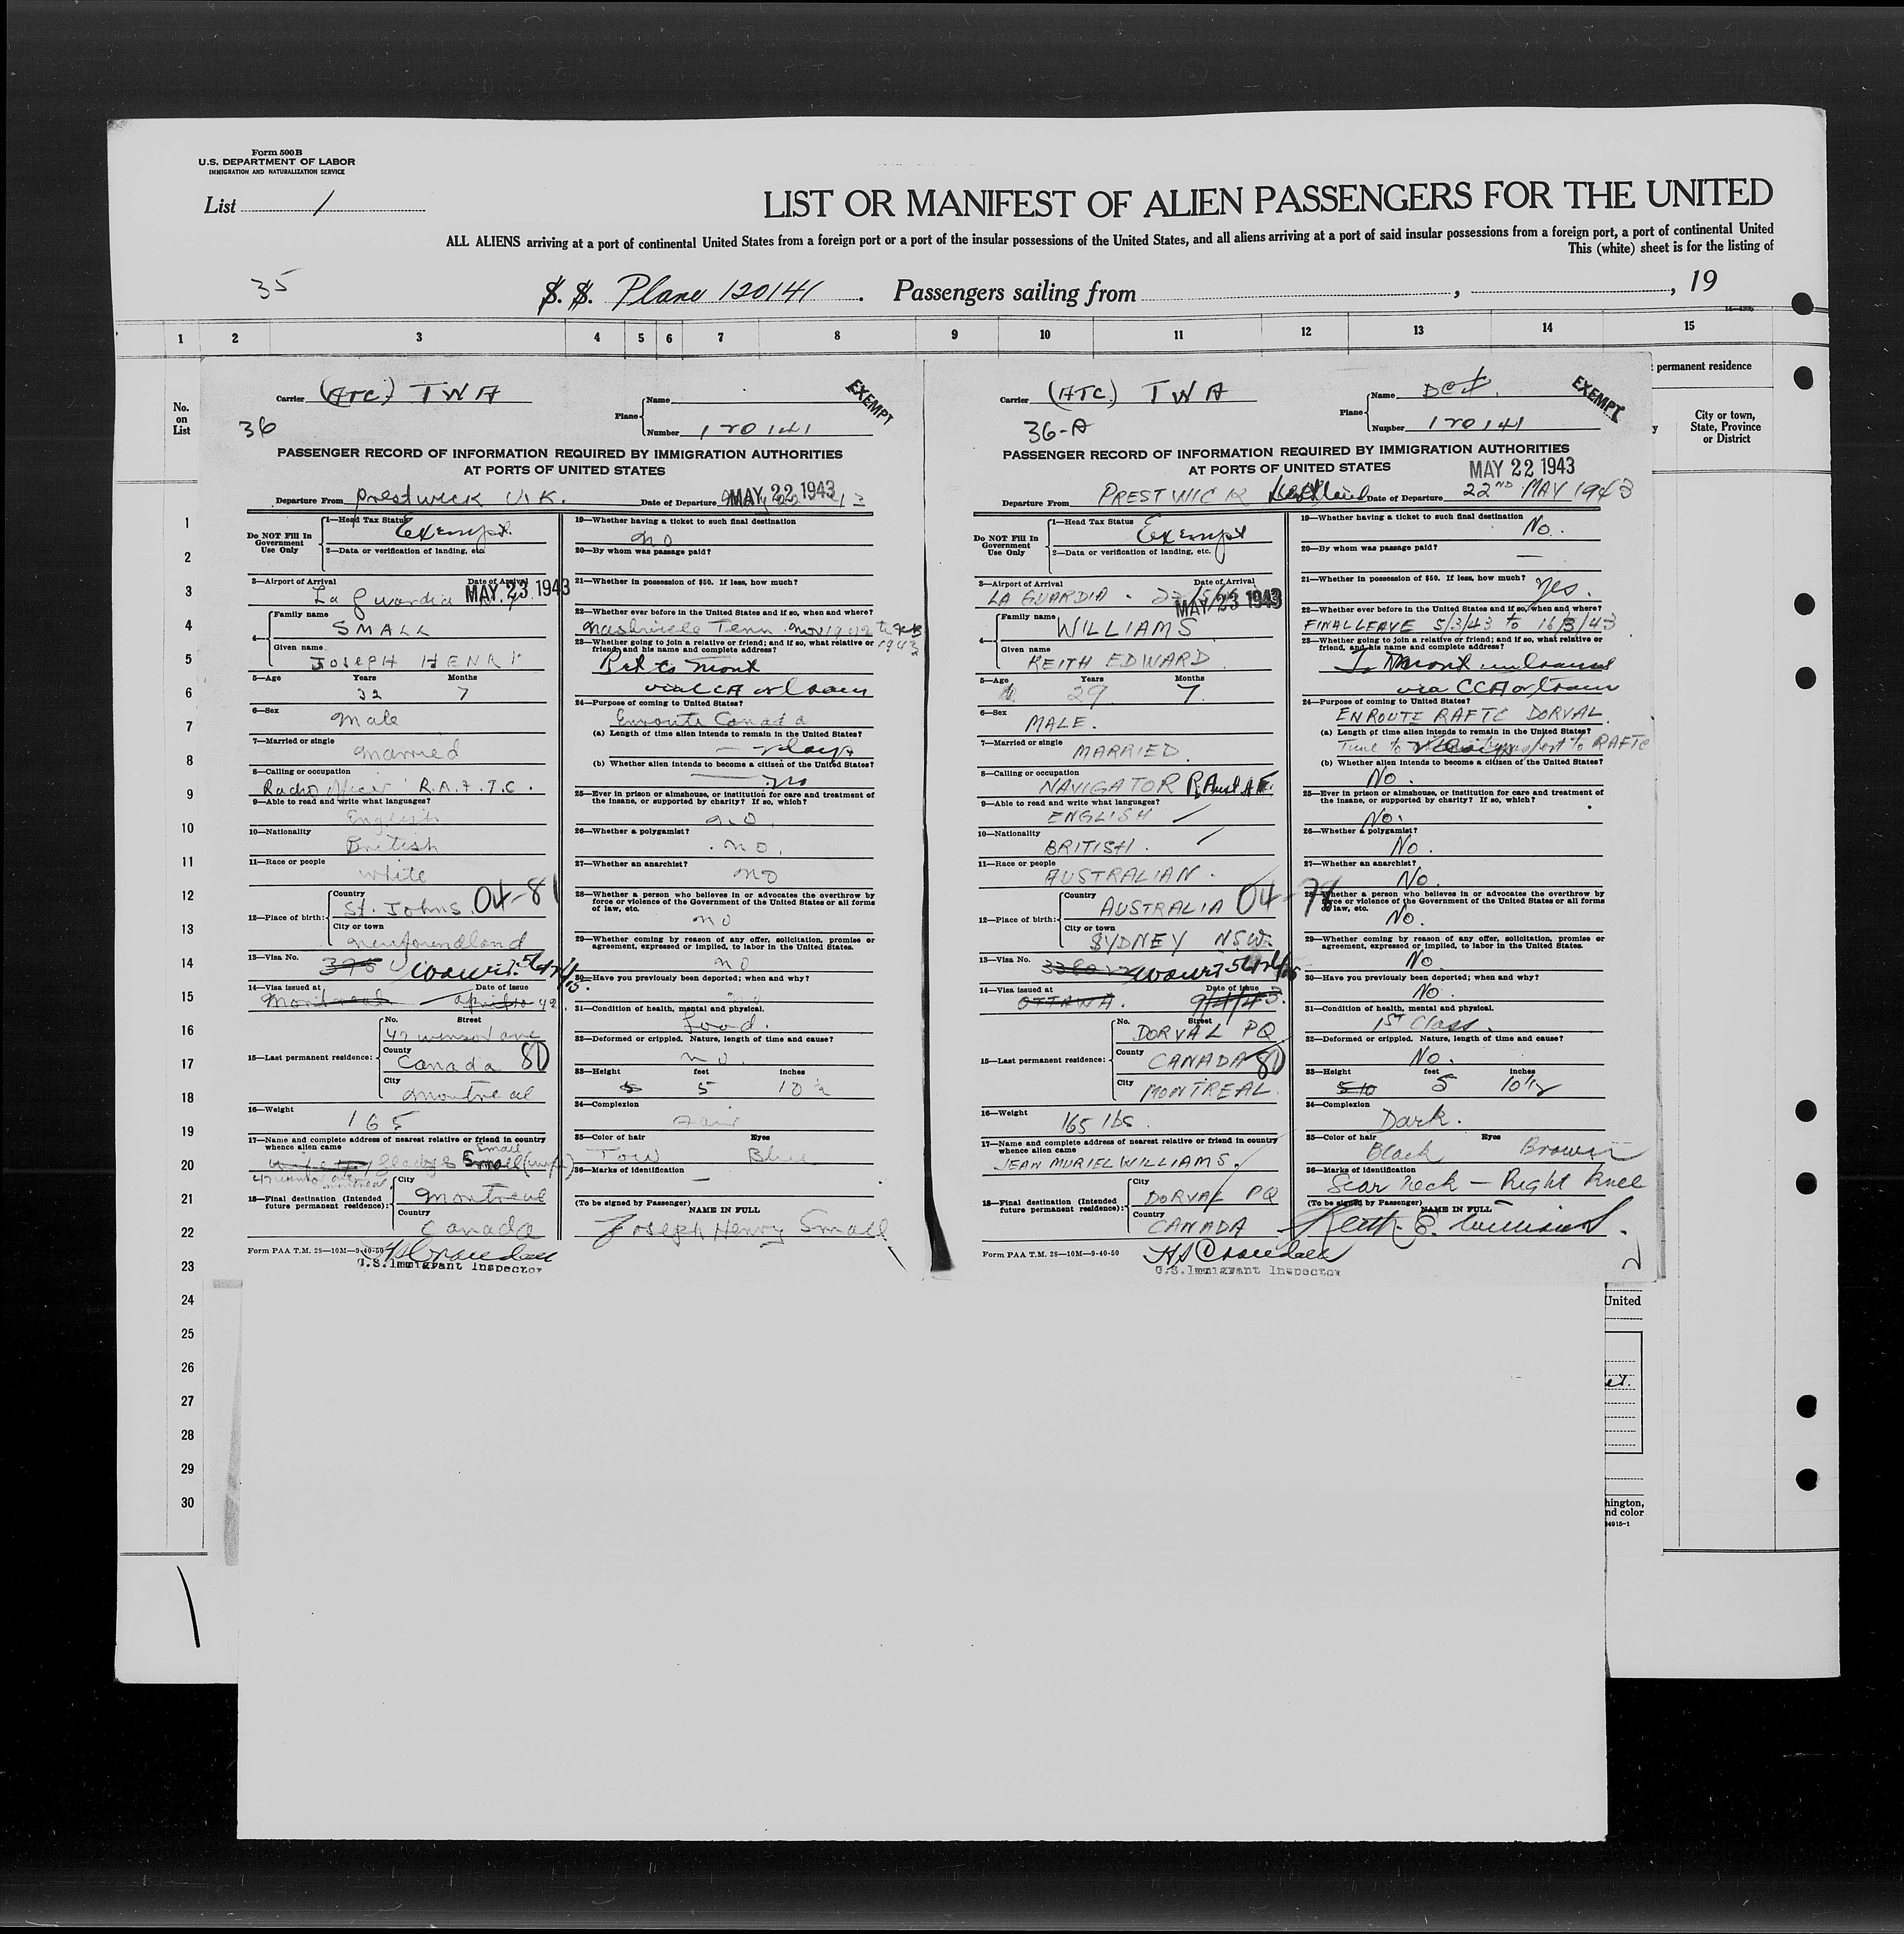 Form 500 B
U.S. DEPARTMENT OF LABOR
IMMIGRATION AND NATURALIZATION SERVICE
List 1
LIST OR MANIFEST OF ALIEN PASSENGERS FOR THE UNITED
ALL ALIENS arriving at a port of continental United States from a foreign port or a port of the insular possessions of the United States, and all aliens arriving at a port of said insular possessions from a foreign port, a port of continental United
This (white) sheet is for the listing of
35
S. S. Plane 120141 . Passengers sailing from , , 19
1 2 3 4 5 6 7 8 9 10 11 12 13 14 15
permanent residence
No. on List
City or town, State, Province or District
1
2
3
4
5
6
7
8
9
10
11
12
13
14
15
16
17
18
19
20
21
22
23
24
25
26
27
28
29
30
Carrier (ATC) TWA
Plane Name
Number 120141
EXEMPT
36
PASSENGER RECORD OF INFORMATION REQUIRED BY IMMIGRATION AUTHORITIES
AT PORTS OF UNITED STATES
Departure From Prestwick U.K. Date of Departure MAY 22 1943
Do NOT Fill In Government Use Only
1—Head Tax Status Exempt
2—Data or verification of landing, etc.
3—Airport of Arrival Date of Arrival
La Guardia MAY 23 1943
4— Family name
SMALL
Given name
JOSEPH HENRY
5—Age Years Months
32 7
6—Sex
Male
7—Married or single
Married
8—Calling or occupation
Radio Officer R.A.F.T.C.
9—Able to read and write what languages?
English
10—Nationality
British
11—Race or people
White
12—Place of birth: Country
St. Johns 04-81
City or town
Newfoundland
13—Visa No. 395
14—Visa issued at Date of issue
Montreal April 10 42
15—Last permanent residence: No. Street
County
Canada 80
City
Montreal
16—Weight
165
17—Name and complete address of nearest relative or friend in country whence alien came
Gladys Small (wife)
18—Final destination (Intended future permanent residence): City
Montreal
Country
Canada
Form PAA T.M. 28—10M—9-40-50
U.S. Immigrant Inspector
19—Whether having a ticket to such final destination
No
20—By whom was passage paid?
21—Whether in possession of $50. If less, how much?
22—Whether ever before in the United States and if so, when and where?
Nashville Tenn. Nov 1942 to Feb 1943
23—Whether going to join a relative or friend; and if so, what relative or friend, and his name and complete address?
Ret to Mont
via CCA or train
24—Purpose of coming to United States?
Enroute Canada
(a) Length of time alien intends to remain in the United States?
days
(b) Whether alien intends to become a citizen of the United States?
No
25—Ever in prison or almshouse, or institution for care and treatment of the insane, or supported by charity? If so, which?
No.
26—Whether a polygamist?
No.
27—Whether an anarchist?
No
28—Whether a person who believes in or advocates the overthrow by force or violence of the Government of the United States or all forms of law, etc.
No
29—Whether coming by reason of any offer, solicitation, promise or agreement, expressed or implied, to labor in the United States.
No
30—Have you previously been deported; when and why?
31—Condition of health, mental and physical.
Good.
32—Deformed or crippled. Nature, length of time and cause?
No.
33—Height feet inches
5 5 10 ½
34—Complexion
Fair
35—Color of hair Eyes
Tow Blue
36—Marks of identification
—
(To be signed by Passenger)
NAME IN FULL
Joseph Henry Small
Carrier (ATC) TWA
Plane Name
Number 120141
EXEMPT
36-A
PASSENGER RECORD OF INFORMATION REQUIRED BY IMMIGRATION AUTHORITIES
AT PORTS OF UNITED STATES
MAY 22 1943
Departure From PRESTWICK Scotland Date of Departure 22ND MAY 1943
Do NOT Fill In Government Use Only
1—Head Tax Status Exempt
2—Data or verification of landing, etc.
3—Airport of Arrival Date of Arrival
LA GUARDIA MAY 23 1943
4— Family name
WILLIAMS
Given name
KEITH EDWARD
5—Age Years Months
29 7
6—Sex
MALE.
7—Married or single
MARRIED
8—Calling or occupation
NAVIGATOR R.Aust.A.F.
9—Able to read and write what languages?
ENGLISH
10—Nationality
BRITISH.
11—Race or people
AUSTRALIAN.
12—Place of birth: Country
AUSTRALIA 04-78
City or town
SYDNEY N.S.W.
13—Visa No.
14—Visa issued at Date of issue
OTTAWA. 9/4/43
15—Last permanent residence: No. Street
DORVAL PQ
County
CANADA 80
City
MONTREAL.
16—Weight
165 lbs.
17—Name and complete address of nearest relative or friend in country whence alien came
JEAN MURIEL WILLIAMS.
18—Final destination (Intended future permanent residence): City
DORVAL PQ
Country
CANADA
Form PAA T.M. 28—10M—9-40-50
U.S. Immigrant Inspector
19—Whether having a ticket to such final destination
No.
20—By whom was passage paid?
—
21—Whether in possession of $50. If less, how much?
Yes.
22—Whether ever before in the United States and if so, when and where?
FINAL LEAVE 5/3/43 to 16/3/43
23—Whether going to join a relative or friend; and if so, what relative or friend, and his name and complete address?
To Mont in transit
via CCA or train
24—Purpose of coming to United States?
EN ROUTE RAFTC DORVAL
(a) Length of time alien intends to remain in the United States?
Time to transport to RAFTC
(b) Whether alien intends to become a citizen of the United States?
No.
25—Ever in prison or almshouse, or institution for care and treatment of the insane, or supported by charity? If so, which?
No.
26—Whether a polygamist?
No.
27—Whether an anarchist?
No.
28—Whether a person who believes in or advocates the overthrow by force or violence of the Government of the United States or all forms of law, etc.
No.
29—Whether coming by reason of any offer, solicitation, promise or agreement, expressed or implied, to labor in the United States.
No.
30—Have you previously been deported; when and why?
No.
31—Condition of health, mental and physical.
1ST Class.
32—Deformed or crippled. Nature, length of time and cause?
No.
33—Height feet inches
5-10 5 10½
34—Complexion
Dark.
35—Color of hair Eyes
Black Brown
36—Marks of identification
Scar Neck — Right Knee
(To be signed by Passenger)
NAME IN FULL
Keith E. Williams.
United
hington,
nd color